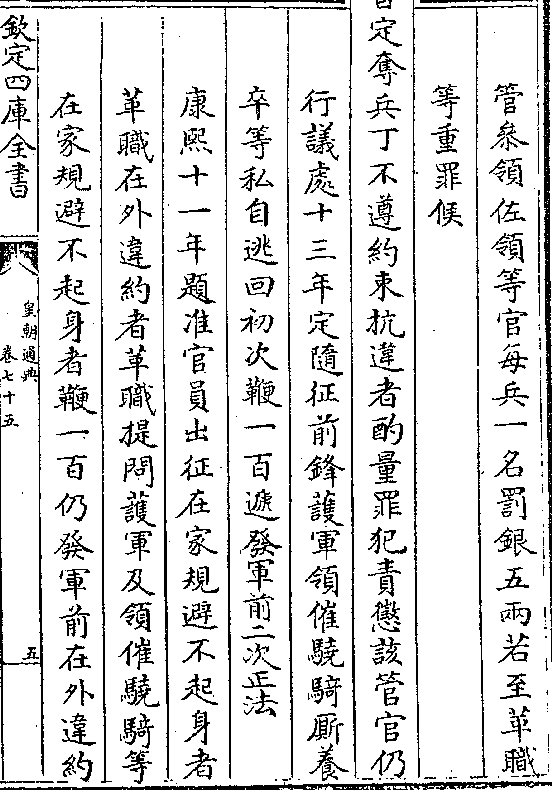 管叅領佐領等官每兵一名罰銀五兩若至革職
等重罪候
旨定奪兵丁不遵約束抗違者酌量罪犯責懲該管官仍
行議處十三年定隨征前鋒護軍領催驍騎厮養
卒等私自逃回初次鞭一百遞發軍前二次正法
康熙十一年題准官員出征在家規避不起身者
革職在外違約者革職提問護軍及領催驍騎等
在家規避不起身者鞭一百仍發軍前在外違約
欽定四庫全書
皇朝通典
卷七十五
五